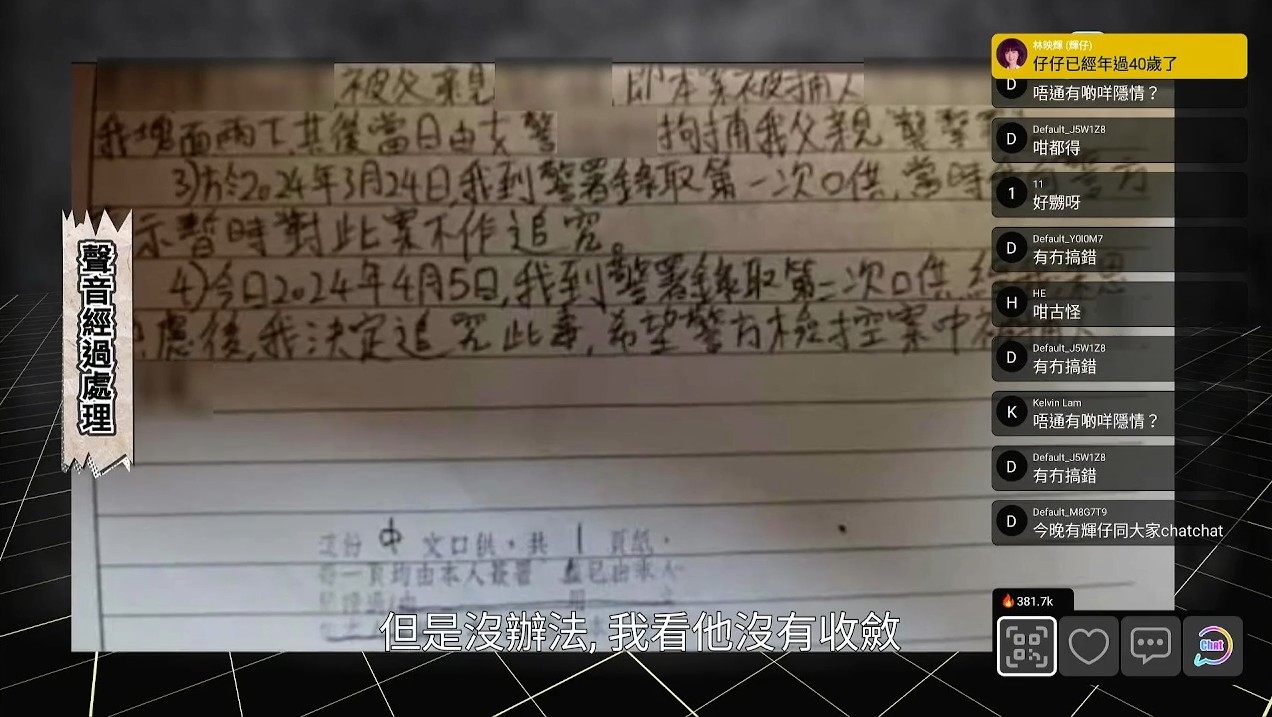 被父親 即本案被捕人
我塊面兩下其後當日由女警 拘捕我父親
3)於2024年3月24日,我到警署錄取第一次口供,當時 警方
示暫時對此案不作追究。
4)今日2024年4月5日,我到警署錄取第二次口供
慮後,我決定追究此事,希望警方檢控案中
這份 中 文口供,共 1 頁紙,
每一頁均由本人簽署
聲音經過處理
但是沒辦法, 我看他沒有收斂
林映輝 (輝仔)
仔仔已經年過40歲了
D
唔通有啲咩隱情?
D
Default_J5W1Z8
咁都得
1
11
好嬲呀
D
Default_Y0I0M7
有冇搞錯
H
HE
咁古怪
D
Default_J5W1Z8
有冇搞錯
K
Kelvin Lam
唔通有啲咩隱情?
D
Default_J5W1Z8
有冇搞錯
D
Default_M8G7T9
今晚有輝仔同大家chatchat
381.7k
Chat